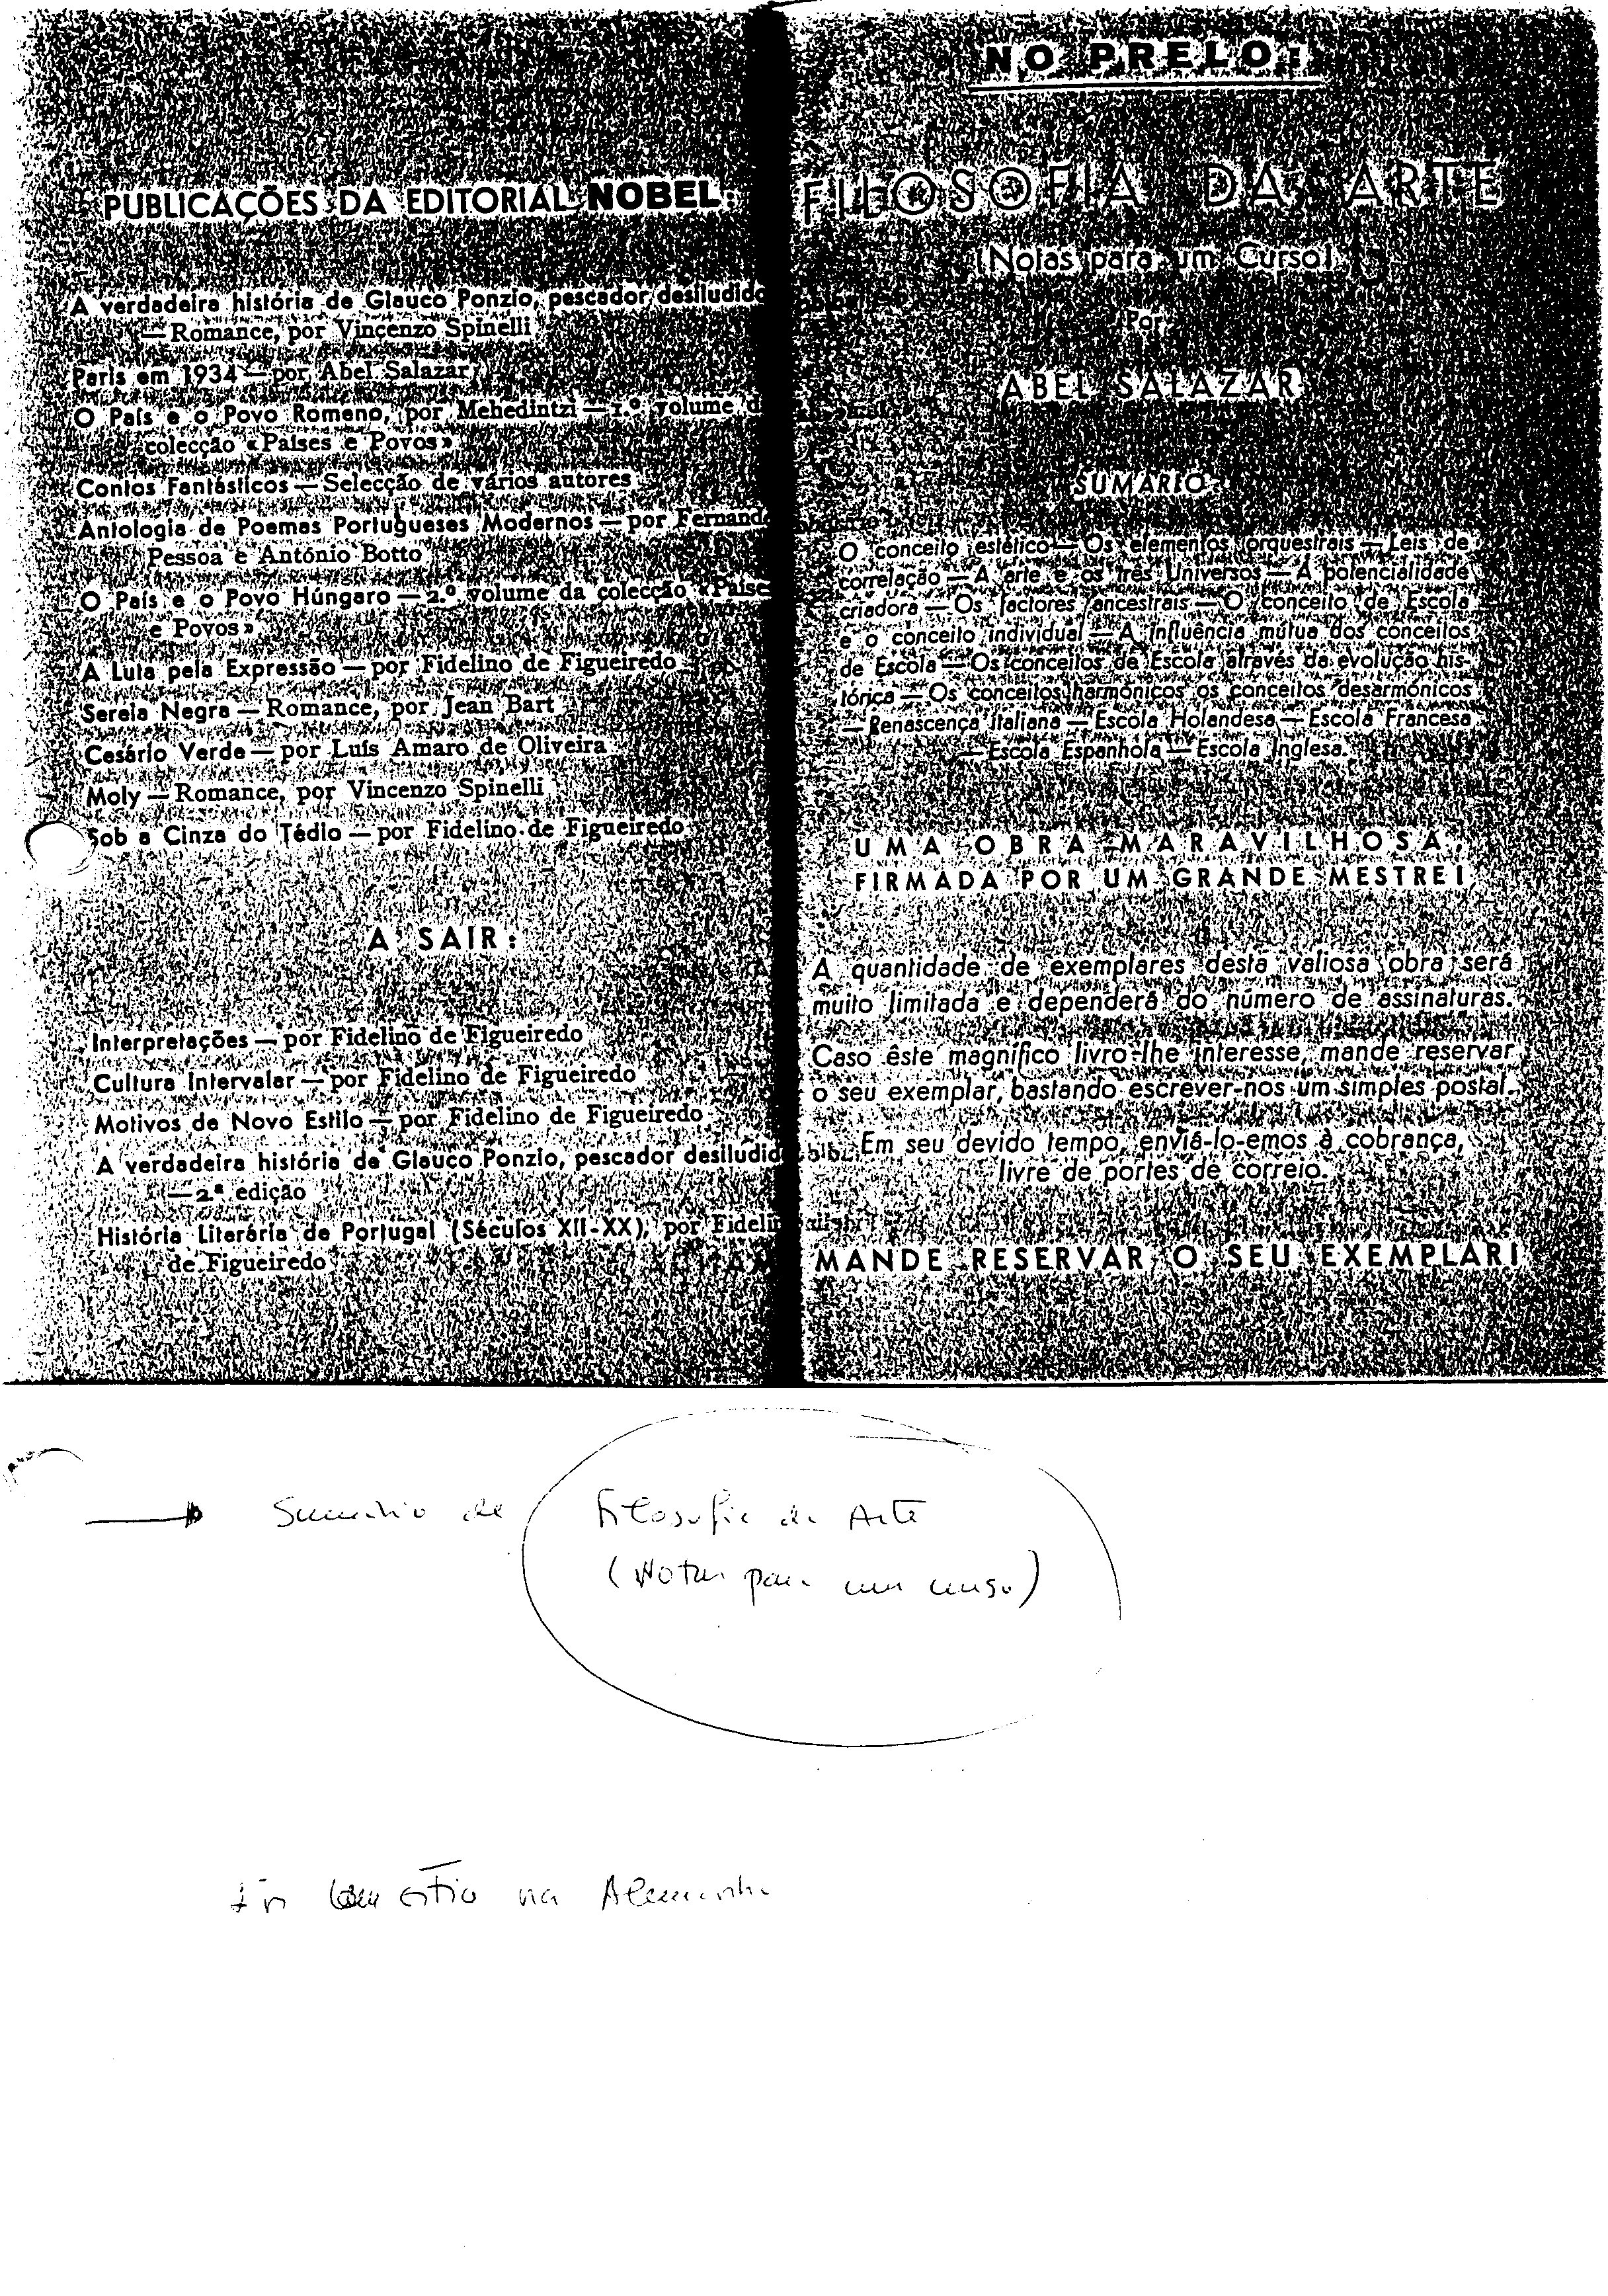 PUBLICAÇÕES DA EDITORIAL NOBEL:
A verdadeira história de Glauco Ponzio, pescador desiludido
— Romance, por Vincenzo Spinelli
Paris em 1934 — por Abel Salazar
O País e o Povo Romeno, por Mehedintzi — 1.º volume d
colecção «Países e Povos»
Contos Fantásticos — Selecção de vários autores
Antologia de Poemas Portugueses Modernos — por Fernando
Pessoa e António Botto
O País e o Povo Húngaro — 2.º volume da colecção «Paíse
e Povos»
A Luta pela Expressão — por Fidelino de Figueiredo
Sereia Negra — Romance, por Jean Bart
Cesário Verde — por Luís Amaro de Oliveira
Moly — Romance, por Vincenzo Spinelli
Sob a Cinza do Tédio — por Fidelino de Figueiredo
A SAIR:
Interpretações — por Fidelino de Figueiredo
Cultura Intervalar — por Fidelino de Figueiredo
Motivos de Novo Estilo — por Fidelino de Figueiredo
A verdadeira história de Glauco Ponzio, pescador desiludid
— 2.ª edição
História Literária de Portugal (Séculos XII-XX), por Fidelin
de Figueiredo
NO PRELO:
FILOSOFIA DA ARTE
(Notas para um Curso)
Por
ABEL SALAZAR
SUMÁRIO
O conceito estético — Os elementos orquestrais — Leis de
correlação — A arte e os três Universos — A potencialidade
criadora — Os factores ancestrais — O conceito de Escola
e o conceito individual — A influência mútua dos conceitos
de Escola — Os conceitos de Escola através da evolução his-
tórica — Os conceitos harmónicos os conceitos desarmónicos
— Renascença Italiana — Escola Holandesa — Escola Francesa
— Escola Espanhola — Escola Inglesa.
UMA OBRA MARAVILHOSA,
FIRMADA POR UM GRANDE MESTRE!
A quantidade de exemplares desta valiosa obra será
muito limitada e dependerá do número de assinaturas.
Caso êste magnífico livro lhe interesse, mande reservar
o seu exemplar, bastando escrever-nos um simples postal.
Em seu devido tempo, enviá-lo-emos à cobrança,
livre de portes de correio.
MANDE RESERVAR O SEU EXEMPLAR!
Sumário de Filosofia da Arte
(Notas para um curso)
na Alemanha